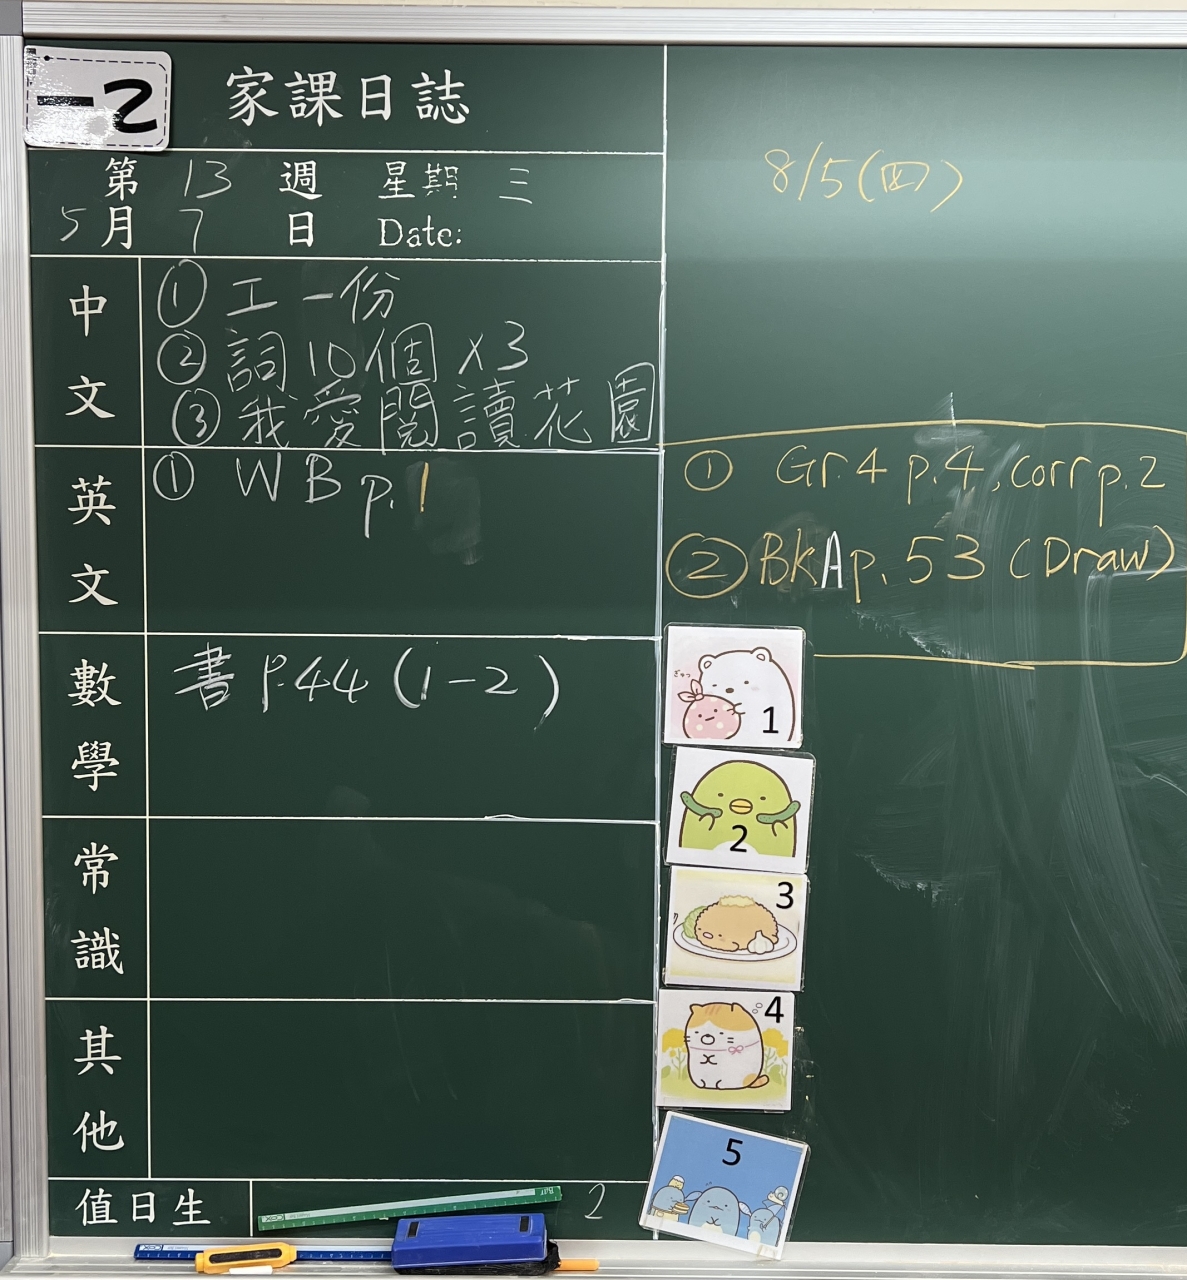 一2
家課日誌
第 13 週 星期 三
5月 7 日 Date:
中文
① 工一份
② 詞10個 x3
③ 我愛閱讀花園
英文
① WB p.1
數學
書 p.44 (1-2)
常識
其他
值日生 2
8/5(四)
① Gr.4 p.4, corr p.2
② BkA p.53 (Draw)
1
2
3
4
5